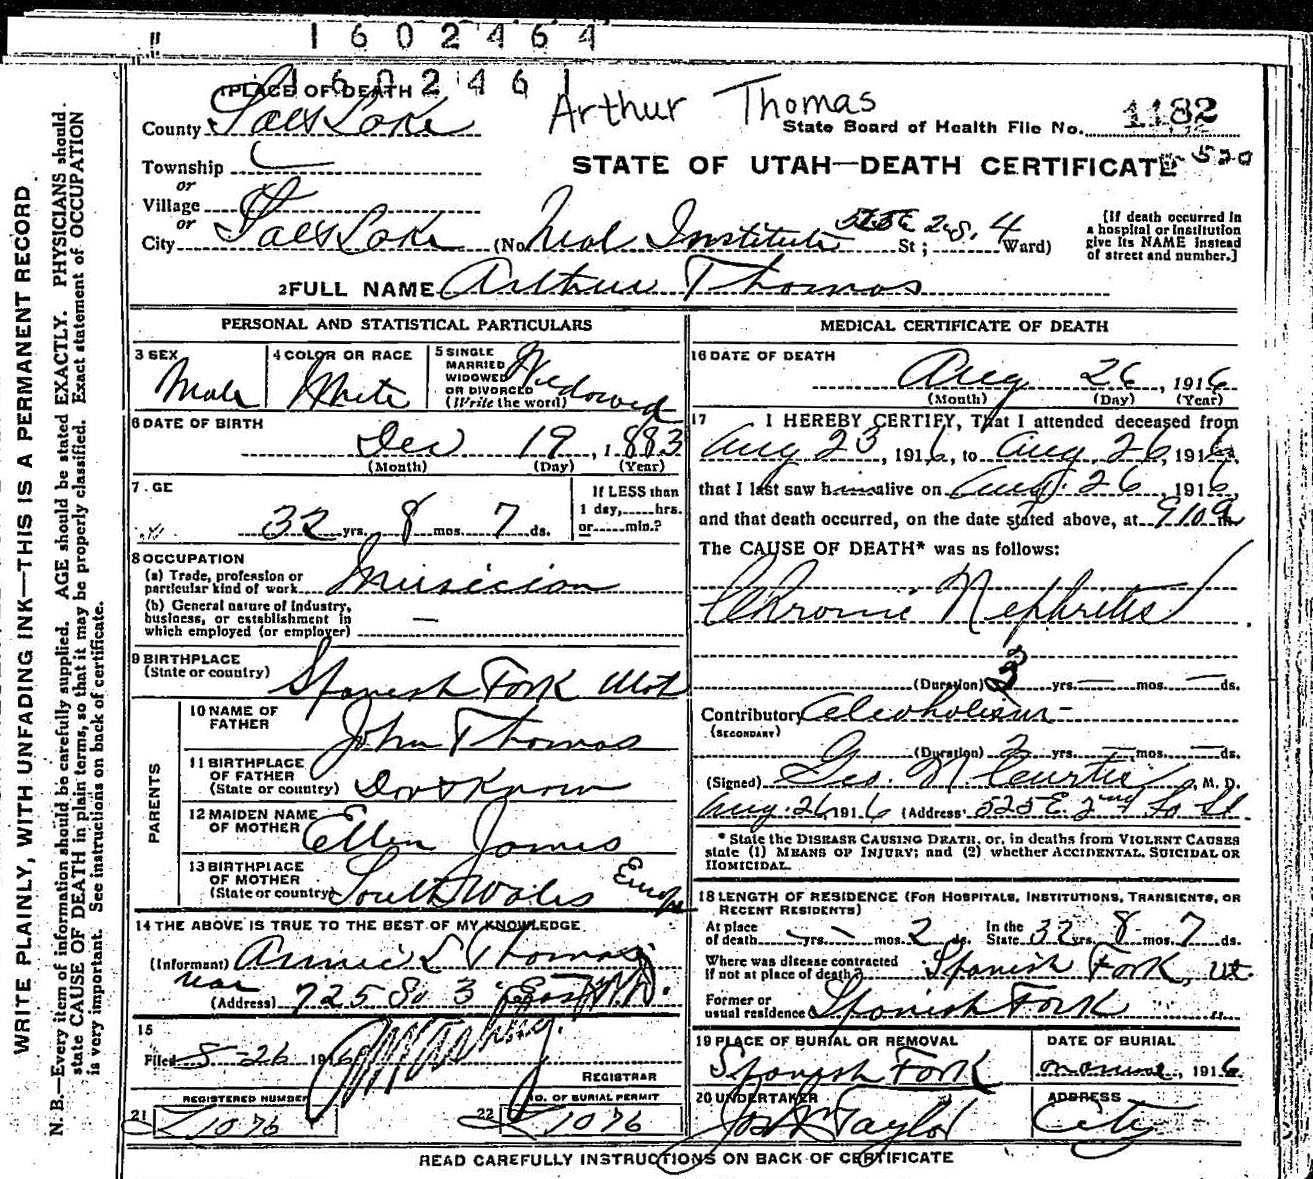 " 1 6 0 2 4 6 4
1 6 0 2 4 6 1
1 PLACE OF DEATH
Arthur Thomas
County Salt Lake
State Board of Health File No. 1182
Township
STATE OF UTAH—DEATH CERTIFICATE 520
or
Village
or
City Salt Lake (No. Neal Institute 525 E 2 S. St; 4 Ward)
[If death occurred in
a hospital or institution
give its NAME instead
of street and number.]
2 FULL NAME Arthur Thomas
WRITE PLAINLY, WITH UNFADING INK—THIS IS A PERMANENT RECORD
N. B.—Every item of information should be carefully supplied. AGE should be stated EXACTLY. PHYSICIANS should
state CAUSE OF DEATH in plain terms, so that it may be properly classified. Exact statement of OCCUPATION
is very important. See instructions on back of certificate.
PERSONAL AND STATISTICAL PARTICULARS
3 SEX
Male
4 COLOR OR RACE
White
5 SINGLE
MARRIED
WIDOWED
OR DIVORCED
(Write the word)
Widowed
6 DATE OF BIRTH
Dec 19, 1883
(Month) (Day) (Year)
7. GE
32 yrs. 8 mos. 7 ds.
If LESS than
1 day,.....hrs.
or.....min.?
8 OCCUPATION
(a) Trade, profession or
particular kind of work Musician
(b) General nature of Industry,
business, or establishment in
which employed (or employer) —
9 BIRTHPLACE
(State or country) Spanish Fork Utah
PARENTS
10 NAME OF
FATHER John Thomas
11 BIRTHPLACE
OF FATHER
(State or country) Dont Know
12 MAIDEN NAME
OF MOTHER Ellen James
13 BIRTHPLACE
OF MOTHER
(State or country) South Wales Europe
14 THE ABOVE IS TRUE TO THE BEST OF MY KNOWLEDGE
(Informant) Annie L Thomas
(Address) 725 So 3 East
15
Filed 8-26 1916
REGISTRAR
REGISTERED NUMBER
21 1076
NO. OF BURIAL PERMIT
22 1076
MEDICAL CERTIFICATE OF DEATH
16 DATE OF DEATH
Aug 26, 1916
(Month) (Day) (Year)
17 I HEREBY CERTIFY, That I attended deceased from
Aug 23, 1916, to Aug 26, 1916,
that I last saw him alive on Aug. 26, 1916,
and that death occurred, on the date stated above, at 9 10 a m
The CAUSE OF DEATH* was as follows:
Chronic Nephritis
(Duration) 2 yrs. — mos. — ds.
Contributory Alcoholism
(SECONDARY)
(Duration) 2 yrs. — mos. — ds.
(Signed) Geo. M Curtis, M. D.
Aug. 26, 1916 (Address) 525 E. 2nd So St
* State the DISEASE CAUSING DEATH, or, in deaths from VIOLENT CAUSES
state (1) MEANS OF INJURY; and (2) whether ACCIDENTAL, SUICIDAL OR
HOMICIDAL.
18 LENGTH OF RESIDENCE (FOR HOSPITALS, INSTITUTIONS, TRANSIENTS, OR
RECENT RESIDENTS)
At place
of death — yrs. — mos. 2 ds. In the
State 32 yrs. 8 mos. 7 ds.
Where was disease contracted
if not at place of death? Spanish Fork, Ut.
Former or
usual residence Spanish Fork
19 PLACE OF BURIAL OR REMOVAL
Spanish Fork
DATE OF BURIAL
, 1916
20 UNDERTAKER
Jos Wm Taylor
ADDRESS
City
READ CAREFULLY INSTRUCTIONS ON BACK OF CERTIFICATE